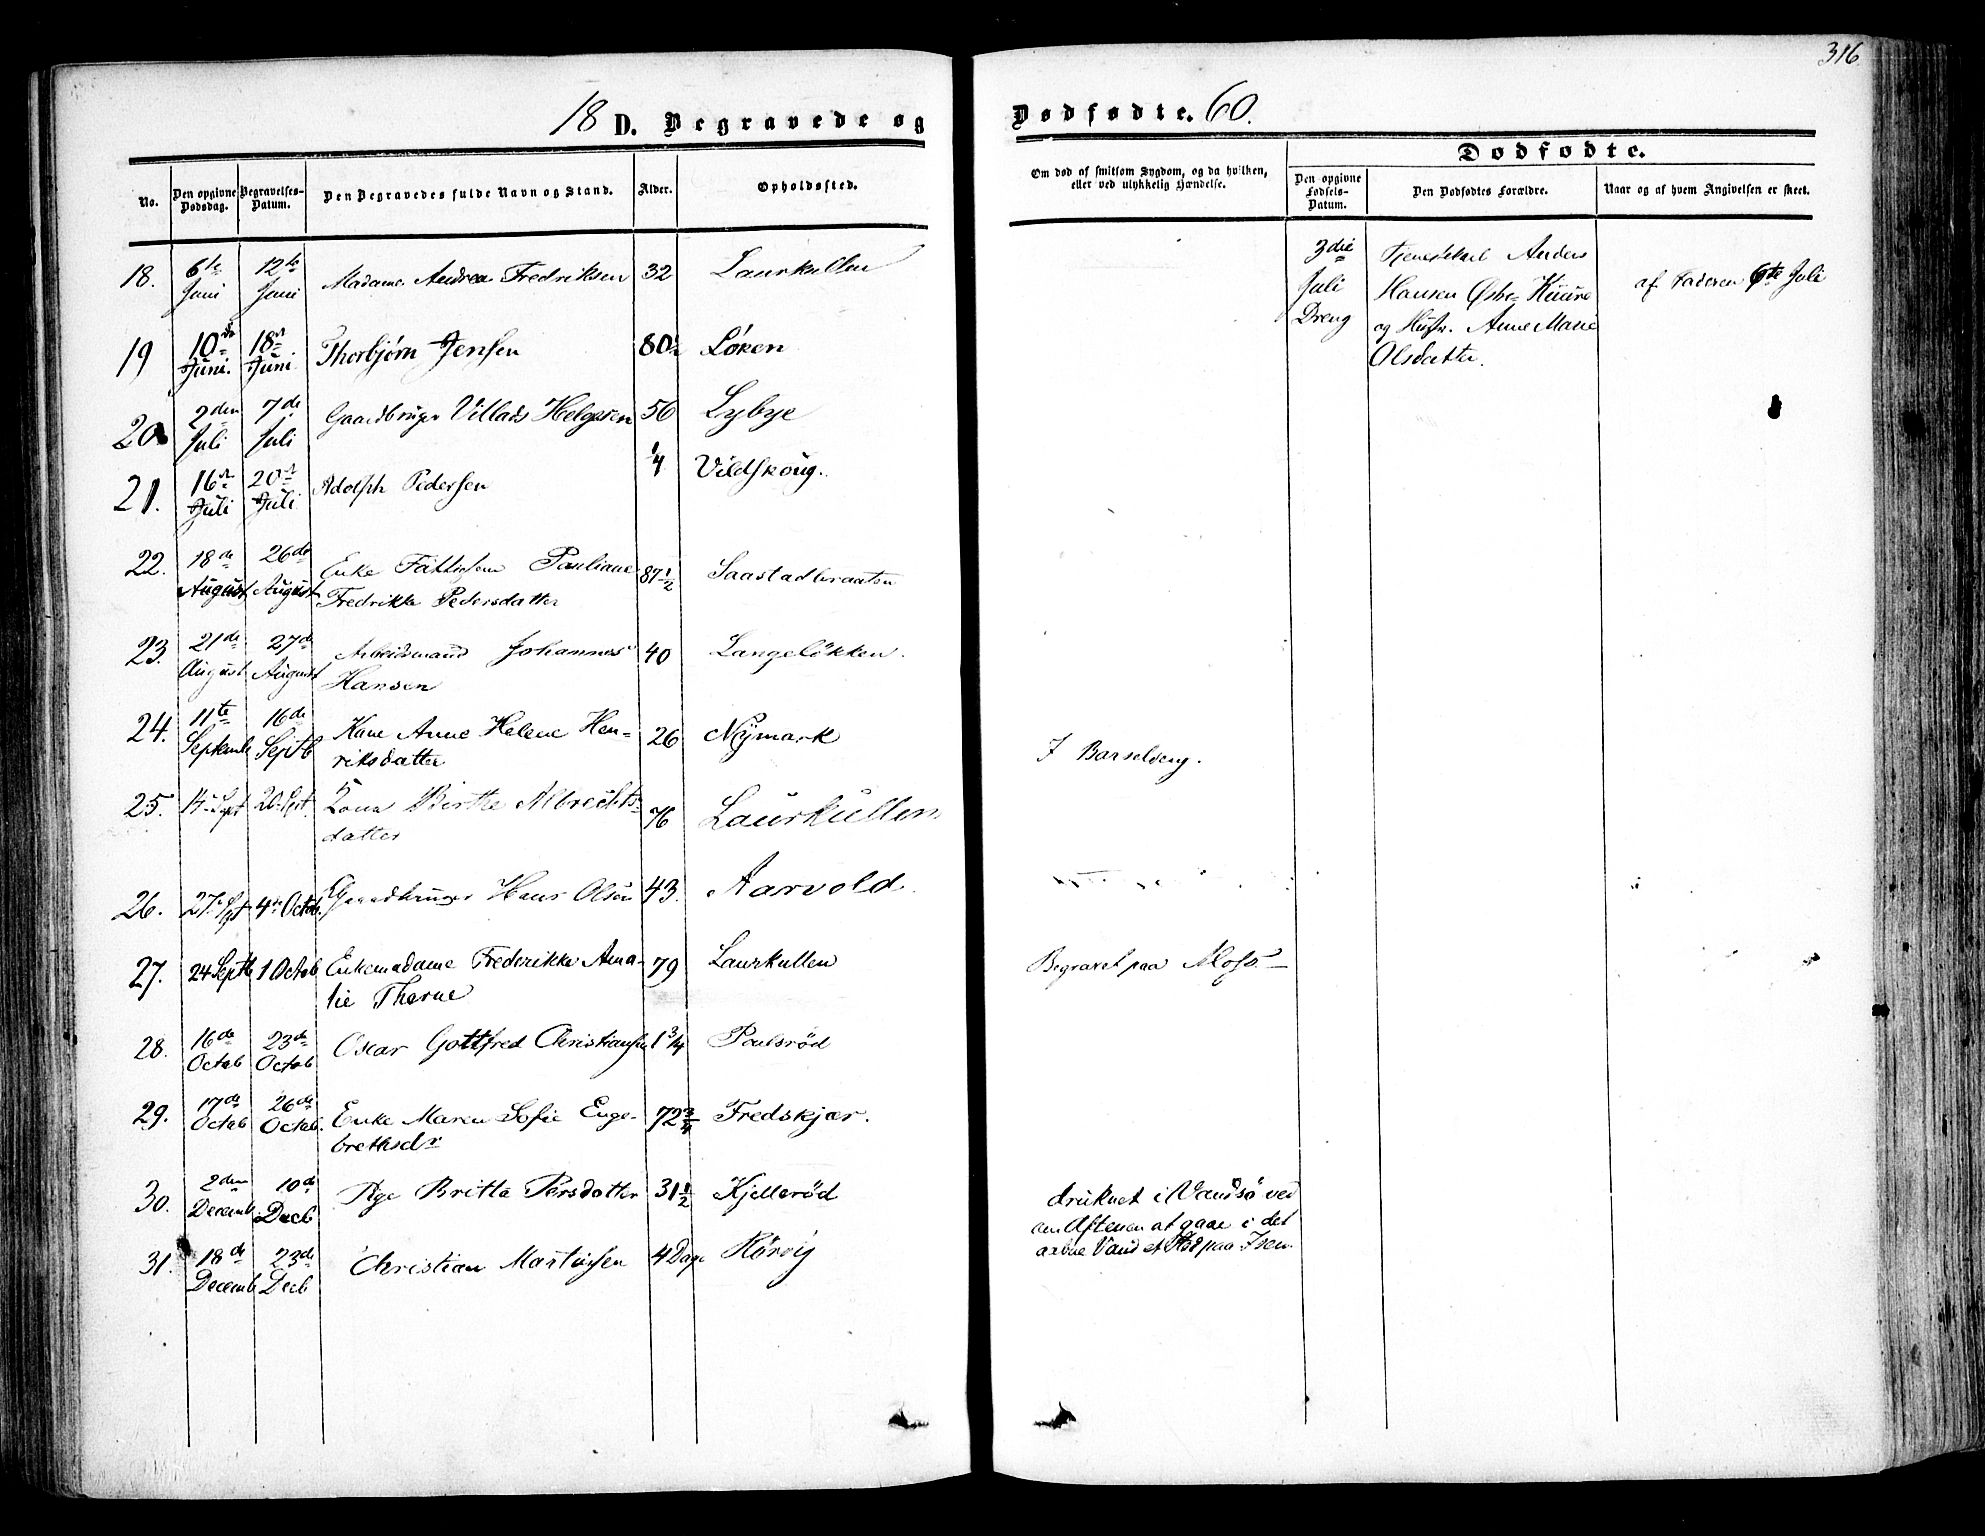 316
18 D. Begravede og Dødfødte. 60.
No.
Den opgivne Dødsdag.
Begravelses-Datum.
Den Begravedes fulde Navn og Stand.
Alder.
Opholdssted.
Om død af smitsom Sygdom, og da hvilken,
eller ved ulykkelig Hændelse.
Dødfødte.
Den opgivne Fødsels-Datum.
Den Dødfødtes Forældre.
Naar og af hvem Angivelsen er skeet.
18. 6te Juni 12te Juni Madame Andrea Fredriksen 32 Laurkullen
19 10de Juni. 18de Juni Thorbjørn Jensen 80½ Løken
20 2den Juli 7de Juli Gaardbruger Villads Helgesen 56 Lybye
21. 16de Juli 20de Juli Adolph Pedersen ¼ Vildskoug.
22. 18de August 26de August Enke Fattiglem Pauliane
Fredrikke Pedersdatter 87½ Saastadbraaten
23. 21de August 27de August Arbeidsmand Johannes
Hansen 40 Langeløkken.
24. 11te Septemb 16de Septb Kone Anne Helene Hen-
riksdatter 26 Nymark I Barselseng.
25. 14 Sept 20 Sept. Kona Birthe Albrechts-
datter 76 Laurkullen
26. 27 Sept 4de Octob. Gaardbruger Hans Olsen 43. Aarvold.
27. 24 Septb 1 Octob Enkemadame Frederikke Ama-
lie Thorne 79 Laurkullen Begravet paa Moss.
28. 16de Octob 23de Octob Oscar Gottfred Christiansen 1¾ Paulsrød
29. 17de Octob 26de Octob. Enke Maren Sofie Enge-
brethsdr 72¾ Fredskjær.
30. 2den Decemb 10de Decb Pige Britta Persdatter 31½ Kjellerød
druknet i Vandsø ved
om Aftenen at gaae i det
aabne Vand et Sted paa Isen.
31. 18de Decemb 23de Decb Christian Martinsen 4 Dage Kørvig
3die Juli Dreng
Tjenestekarl Anders
Hansen Østre Kuure
og Hustr. Anne Marie
Olsdatter.
af Faderen 6te Juli